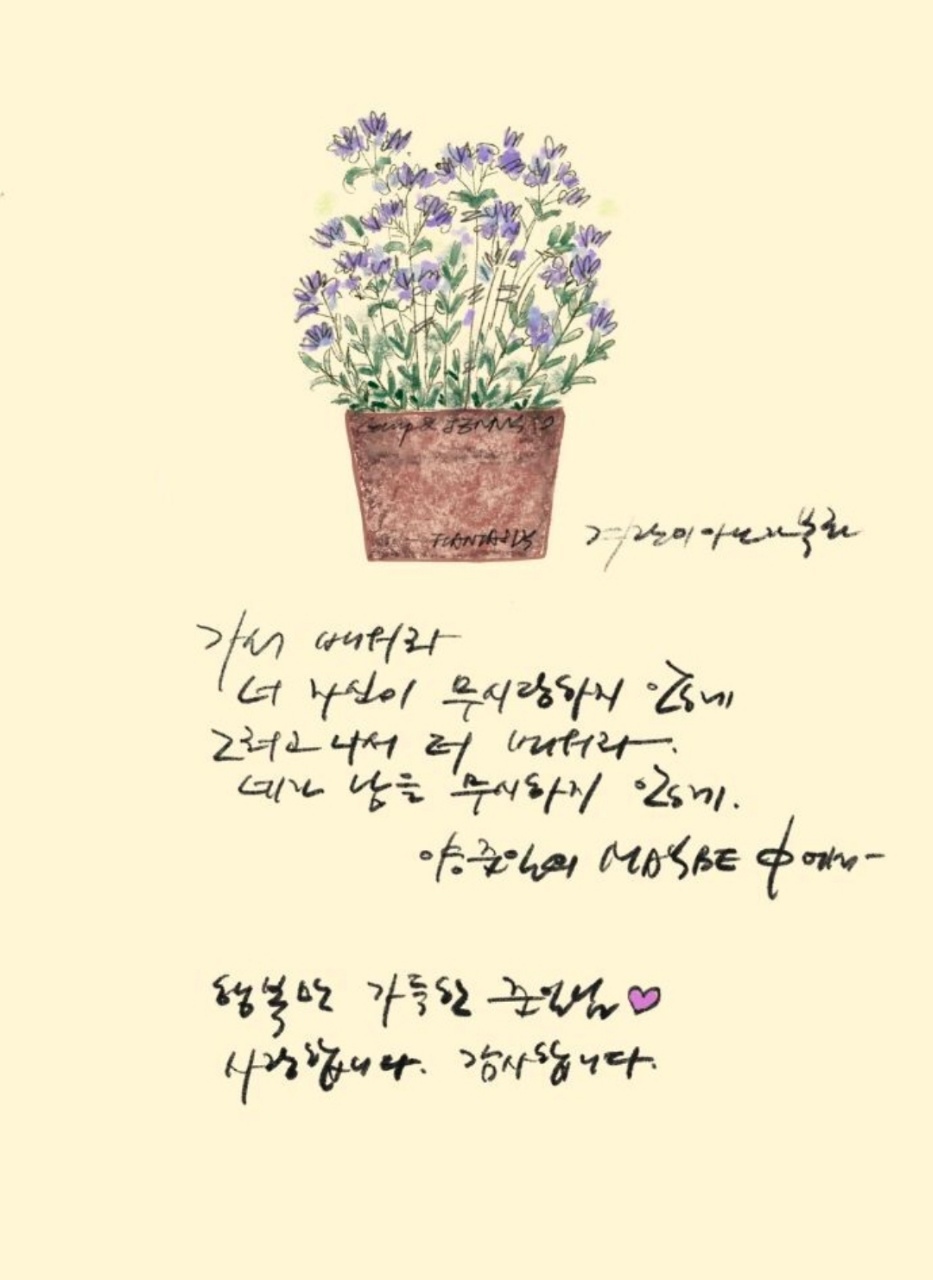 가서 배워라
너 자신이 무시당하지 않게
그러고 나서 더 배워라.
네가 남을 무시하지 않게.
양준일의 MAYBE 中에서-
행복만 가득한 준일님
사랑합니다. 감사합니다.